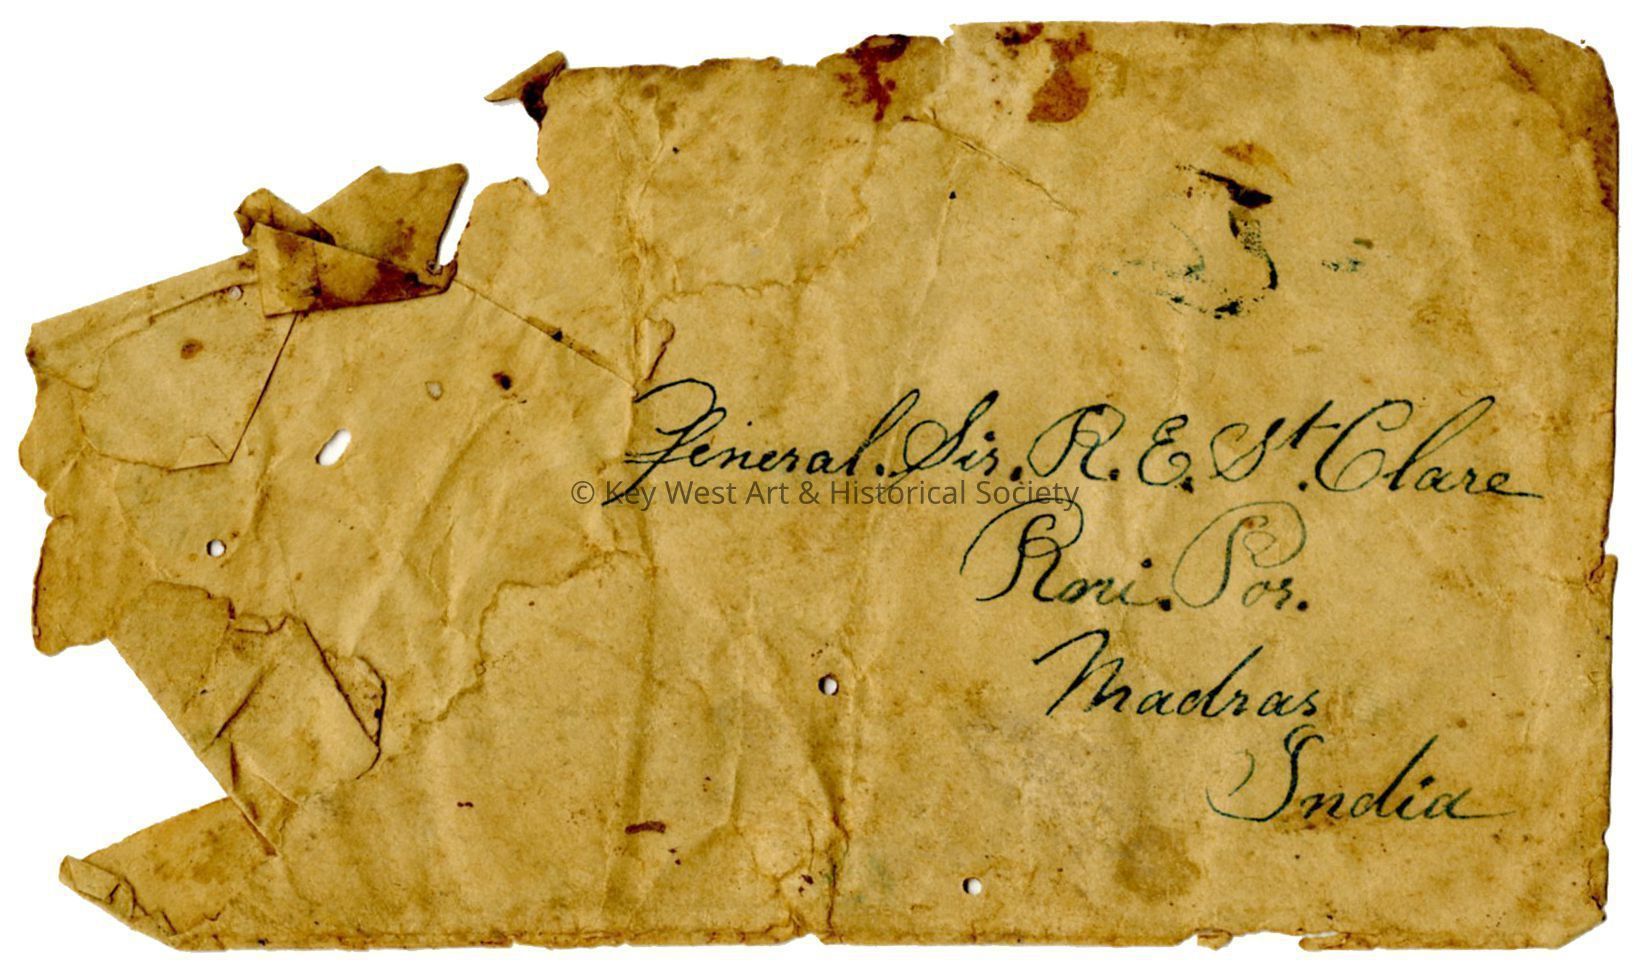 General. Sir. R. E. St. Clare
© Key West Art & Historical Society
Rmi. Por.
Madras
India